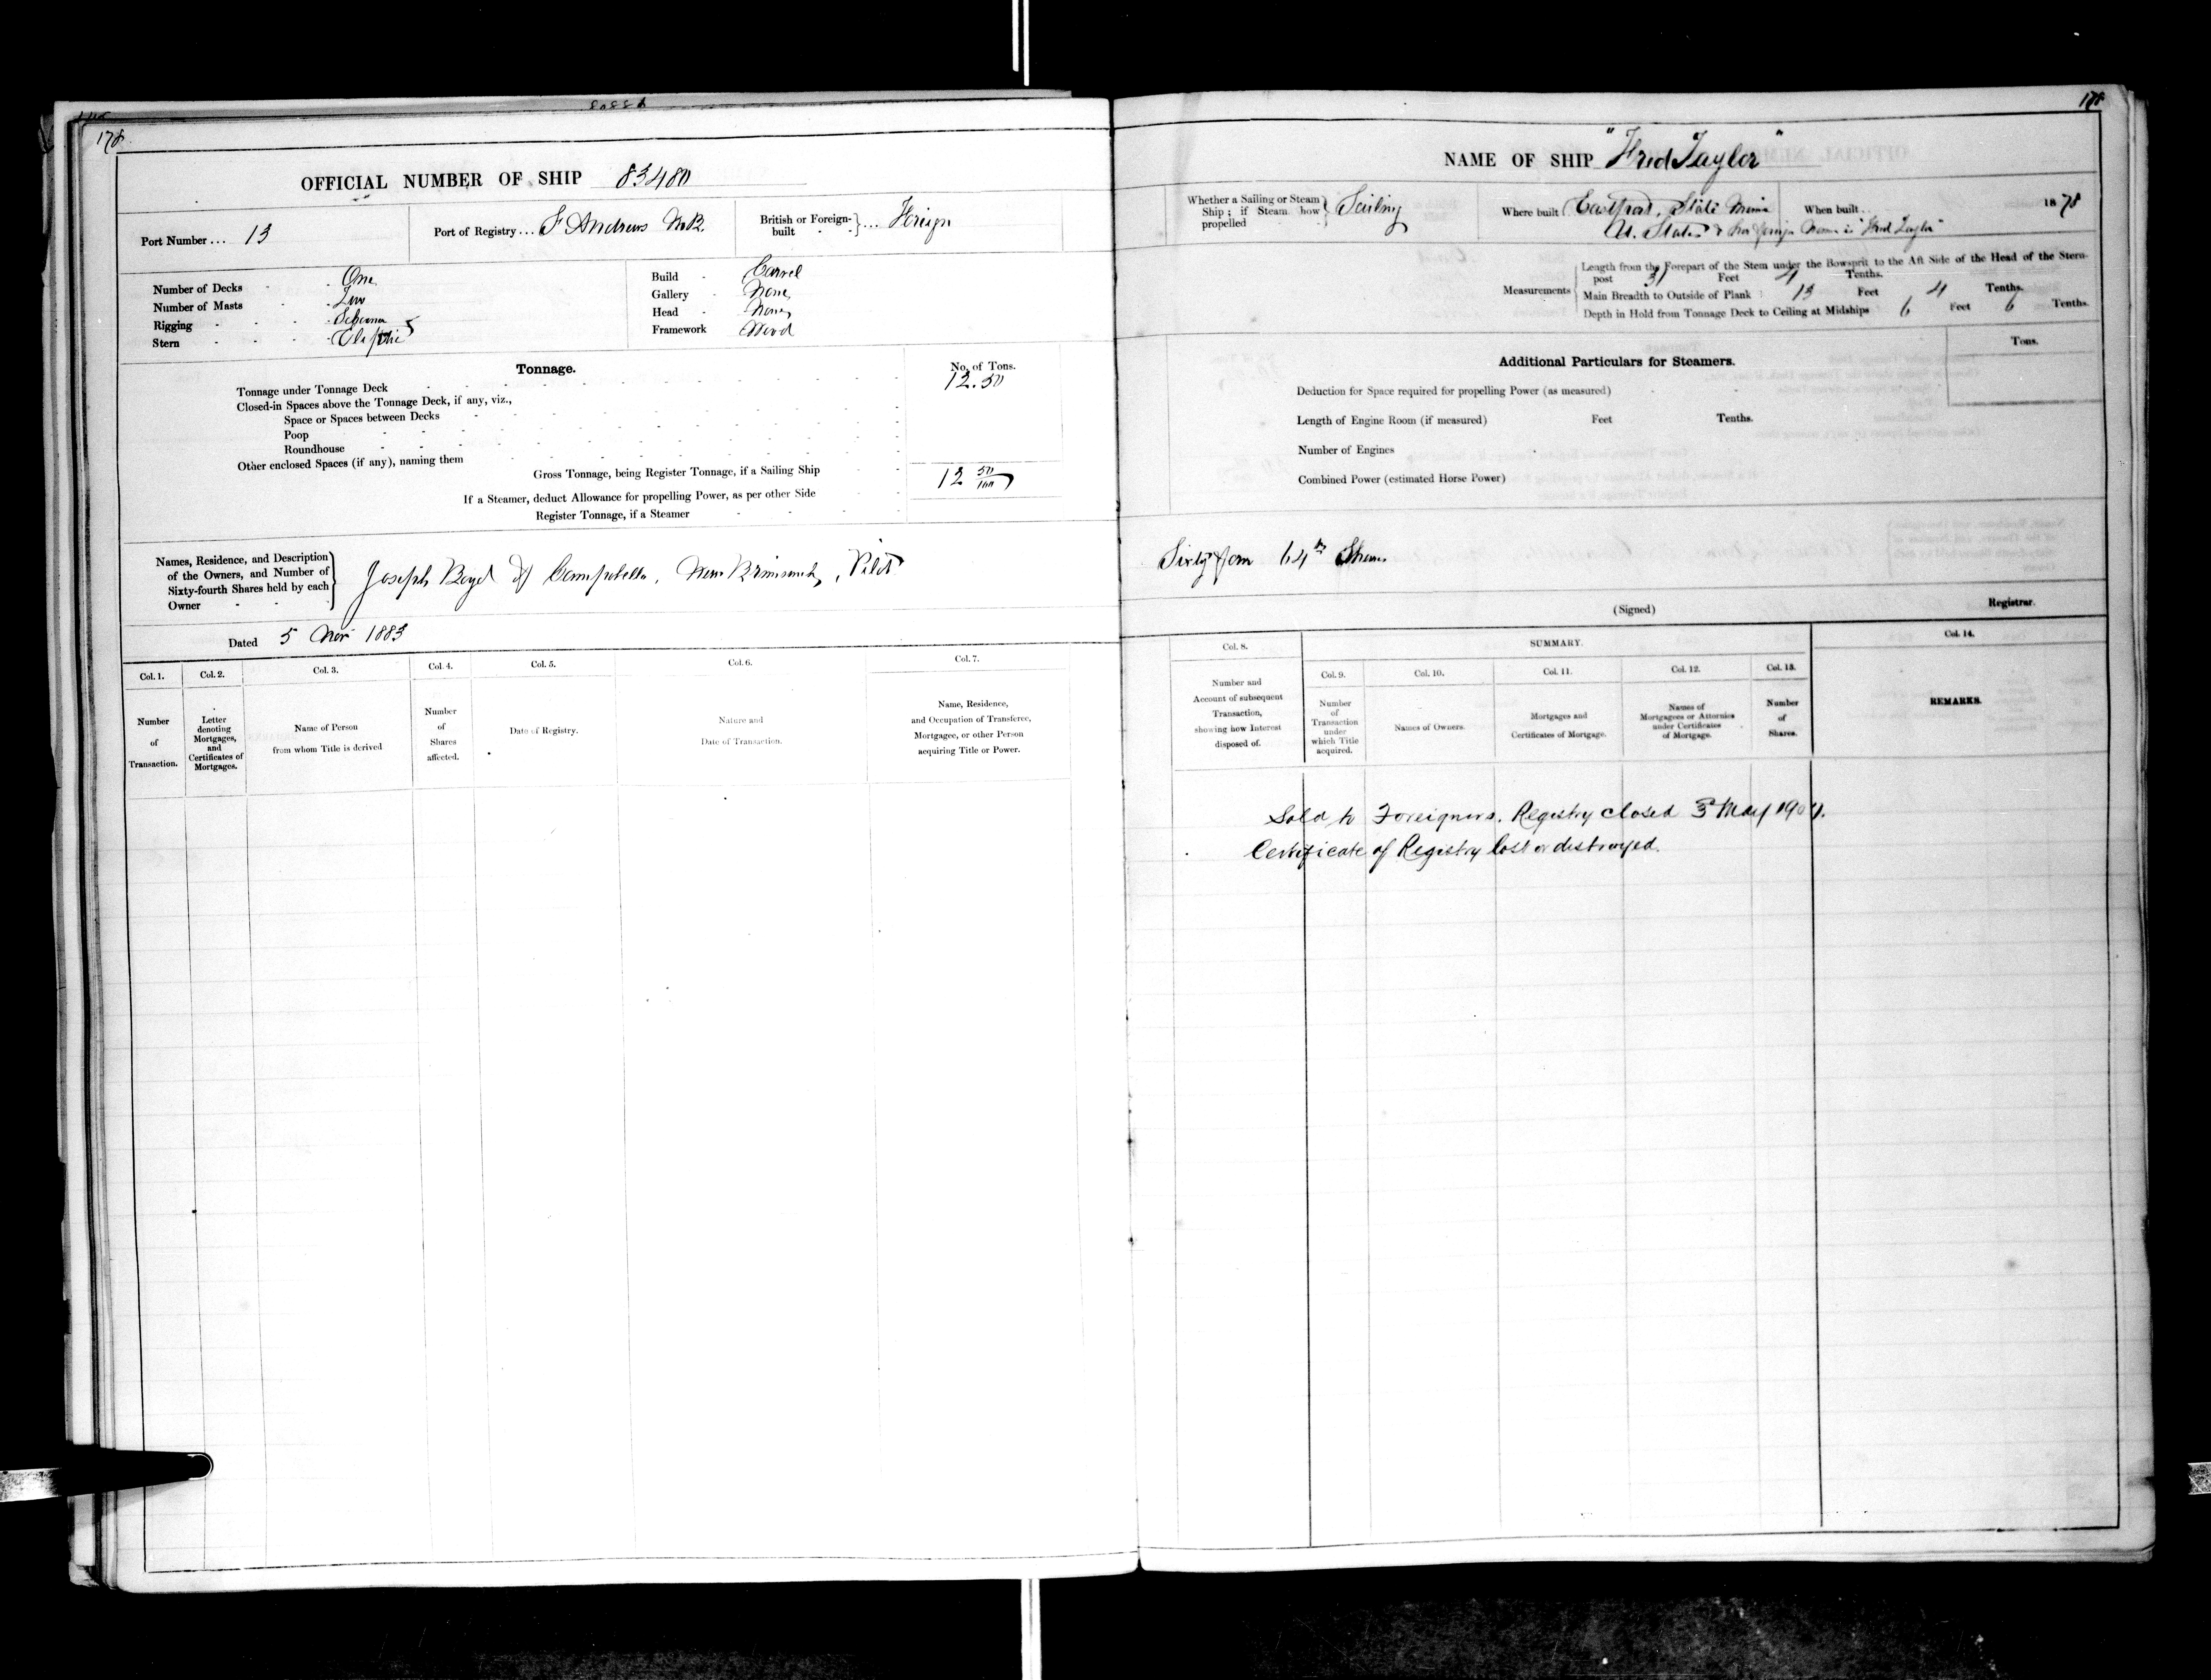 178.
OFFICIAL NUMBER OF SHIP 83480
Port Number ... 13
Port of Registry ... St Andrews N.B.
British or Foreign-built ... Foreign
Number of Decks One
Number of Masts Two
Rigging Schooner
Stern Eliptic
Build Carvel
Gallery None
Head None
Framework Wood
Tonnage.
No. of Tons.
Tonnage under Tonnage Deck 12.50
Closed-in Spaces above the Tonnage Deck, if any, viz.,
Space or Spaces between Decks
Poop
Roundhouse
Other enclosed Spaces (if any), naming them
Gross Tonnage, being Register Tonnage, if a Sailing Ship 12 50/100
If a Steamer, deduct Allowance for propelling Power, as per other Side
Register Tonnage, if a Steamer
Names, Residence, and Description of the Owners, and Number of Sixty-fourth Shares held by each Owner
Joseph Boyd of Campobello, New Brunswick, Pilot
Dated 5 Nov 1883
Col. 1. Number of Transaction.
Col. 2. Letter denoting Mortgages, and Certificates of Mortgages.
Col. 3. Name of Person from whom Title is derived
Col. 4. Number of Shares affected.
Col. 5. Date of Registry.
Col. 6. Nature and Date of Transaction.
Col. 7. Name, Residence, and Occupation of Transferee, Mortgagee, or other Person acquiring Title or Power.
178
NAME OF SHIP "Fred Taylor"
Whether a Sailing or Steam Ship; if Steam how propelled Sailing
Where built Eastport, State Maine
U. States & her foreign Name is "Fred Taylor"
When built .. 1878
Measurements
Length from the Forepart of the Stem under the Bowsprit to the Aft Side of the Head of the Stern-
post 31 Feet 4 Tenths.
Main Breadth to Outside of Plank 13 Feet 4 Tenths.
Depth in Hold from Tonnage Deck to Ceiling at Midships 6 Feet 6 Tenths.
Additional Particulars for Steamers.
Tons.
Deduction for Space required for propelling Power (as measured)
Length of Engine Room (if measured) Feet Tenths.
Number of Engines
Combined Power (estimated Horse Power)
Sixty four 64th Shares
(Signed) Registrar.
Col. 8. Number and Account of subsequent Transaction, showing how Interest disposed of.
SUMMARY.
Col. 9. Number of Transaction under which Title acquired.
Col. 10. Names of Owners.
Col. 11. Mortgages and Certificates of Mortgage.
Col. 12. Names of Mortgagees or Attornies under Certificates of Mortgage.
Col. 13. Number of Shares.
Col. 14. REMARKS.
Sold to Foreigners. Registry closed 3rd May
Certificate of Registry lost or distroyed.